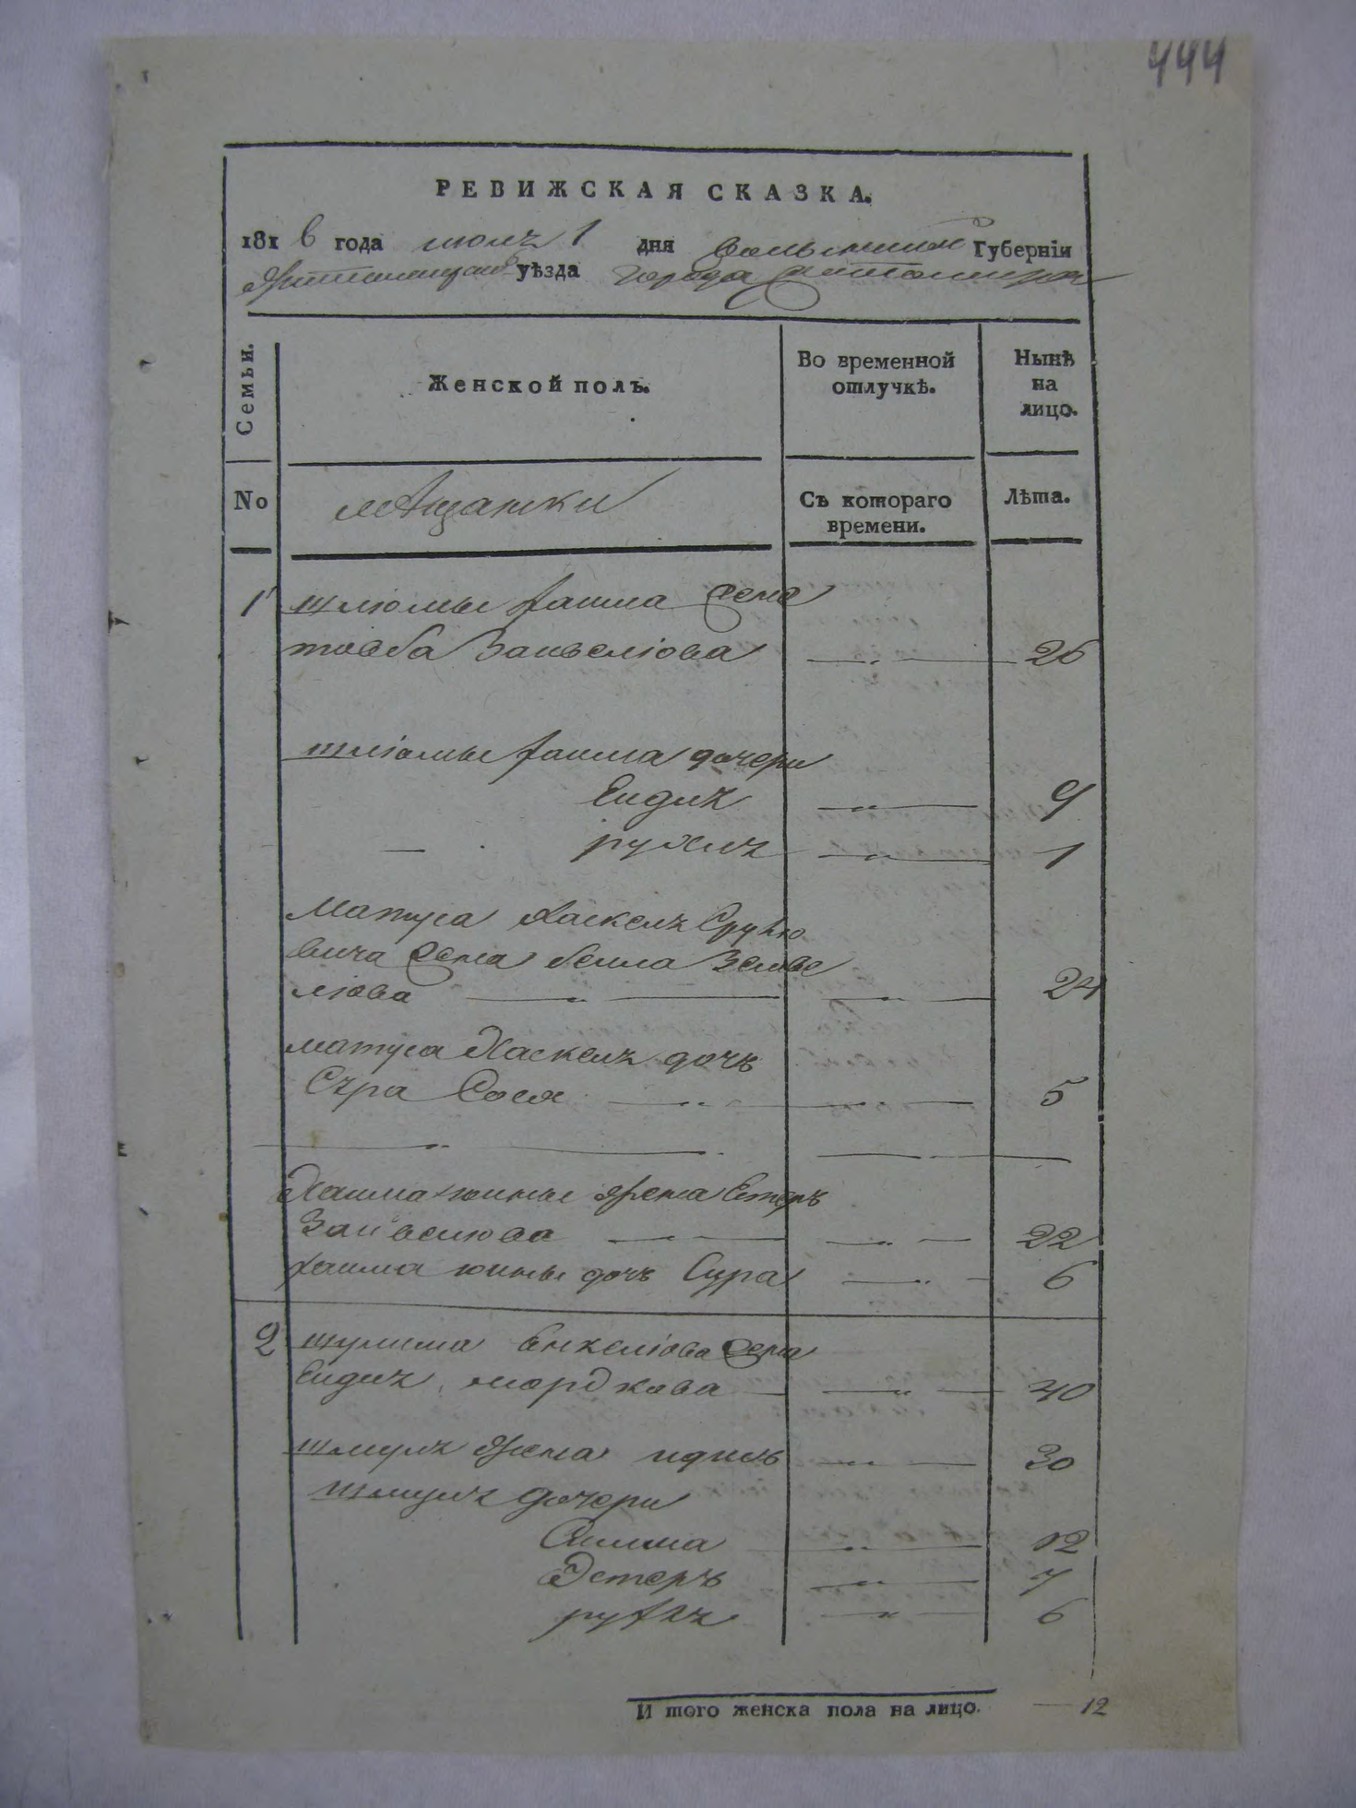 444
РЕВИЖСКАЯ СКАЗКА.
181 6 года июлъ 1 дня волынской Губерніи
Житомирскаго уѣзда города Житомира
Семьи.
Женской полъ.
Во временной отлучкѣ.
Нынѣ на лицо.
No
мещанки
Съ котораго времени.
Лѣта.
1 шлюмы хаима жена
товба Зайвелюва 26
шлiомы хаима дочери
Ендлъ 9
рухлъ 1
Матуса Хаскелъ Срулю
вича жена бейла Зейве
лiова 24
матуса Хаскелъ дочъ
Сура Сося 5
Хаима юины жена Естеръ
Зайвелюва 22
хаима юины дочъ Сура 6
2 шулима Енкелiова жена
Ендлъ мордкова 40
шмулъ жена идисъ 30
шмулъ дочери
Симма 12
Эстеръ 7
рухлъ 6
И того женска пола на лицо. 12